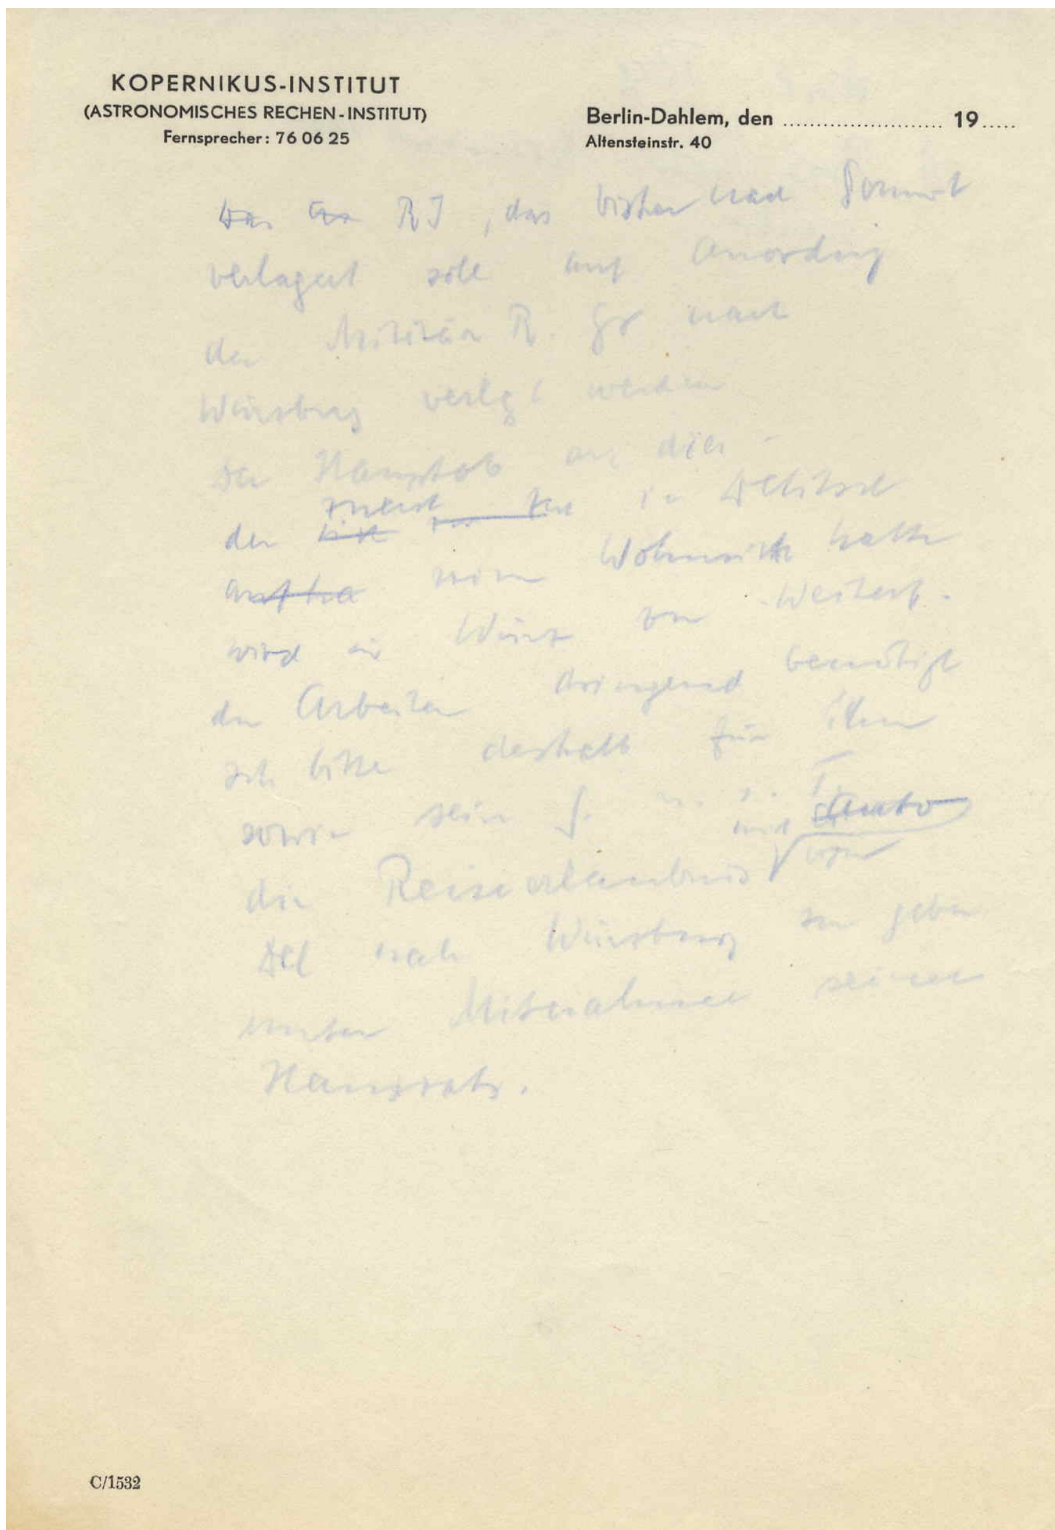 KOPERNIKUS-INSTITUT
(ASTRONOMISCHES RECHEN-INSTITUT)
Fernsprecher: 76 06 25
Berlin-Dahlem, den ........................ 19.....
Altensteinstr. 40
Das RI, das bisher nach
verlagert soll auf Anordng
der Militär R. nach
Würzburg verlegt werden
Der
der zuerst in Delitzsch
seine Wohnsitz hatte
wird in Würz zur Weiterf.
der Arbeiten dringend benötigt
Ich bitte deshalb für ihn
sowie sein
und Auto
die Reiseerlaubnis von
Del nach Würzburg zu geben
unter Mitnahme seines
Hausrats.
C/1532